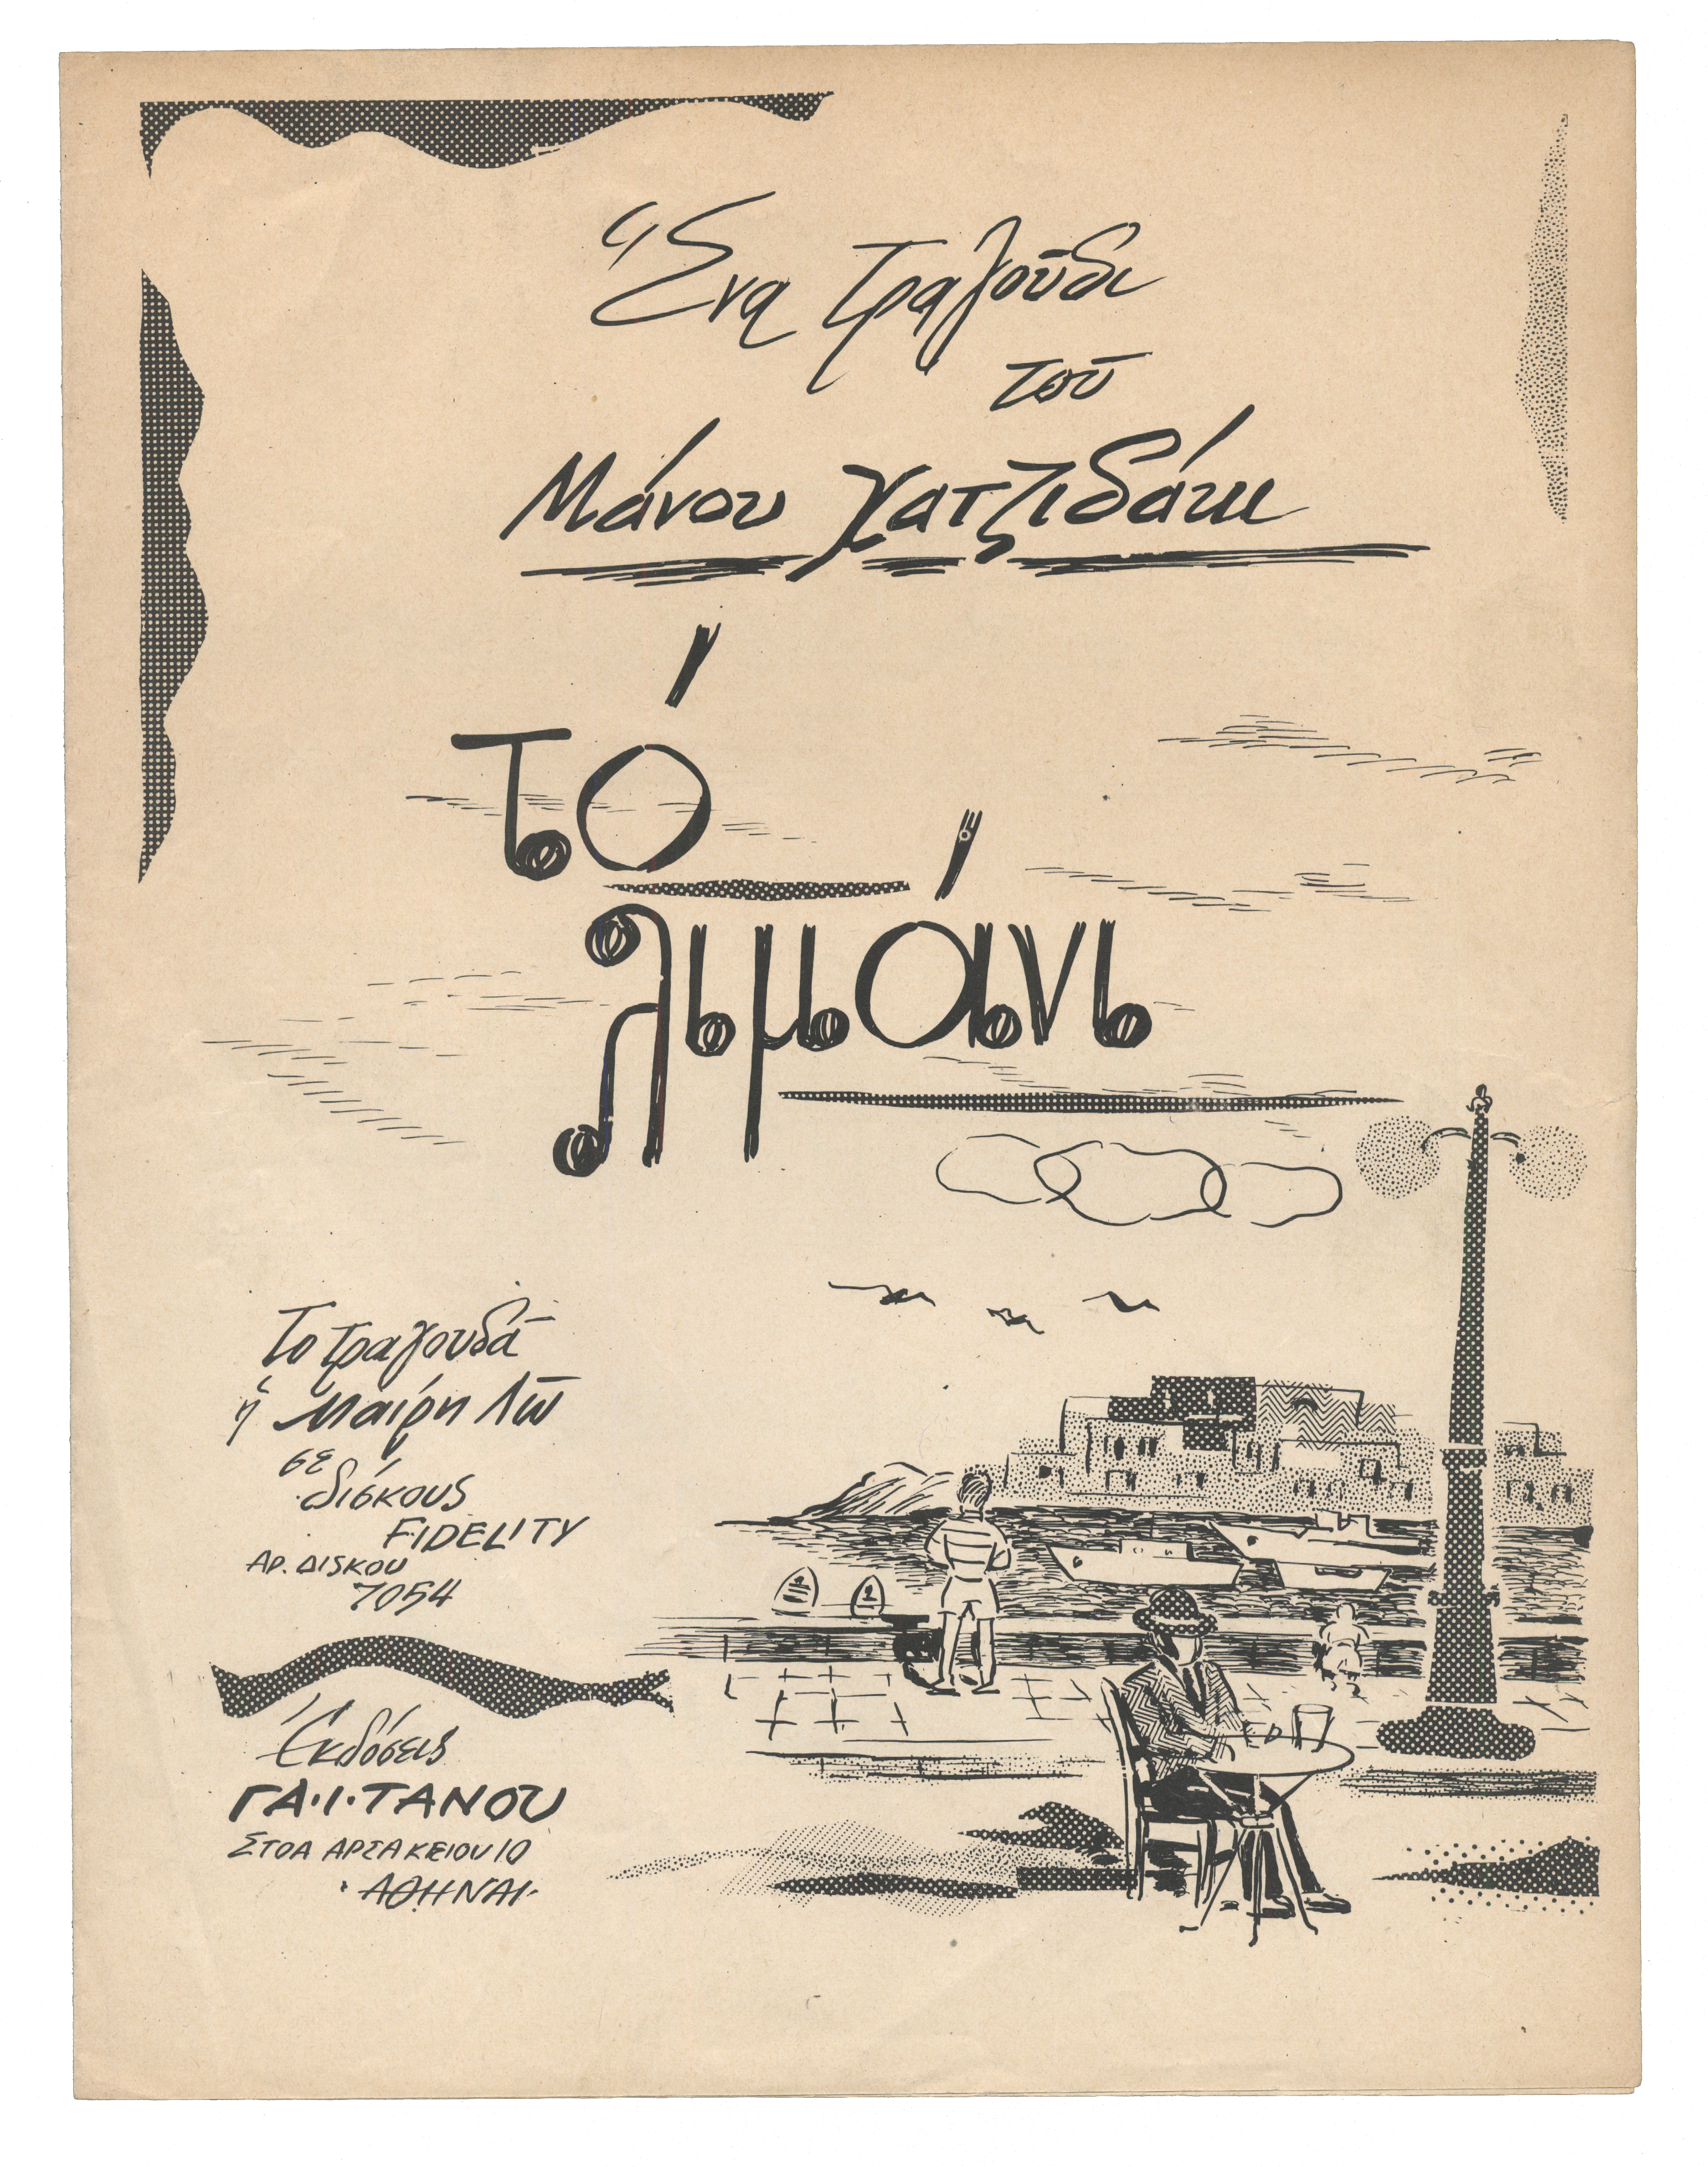 Ἕνα τραγοῦδι
τοῦ
Μάνου Χατζιδάκι
Τό
λιμάνι
Το τραγουδᾶ
ἡ Μαίρη Λῶ
σε
δίσκους
FIDELITY
ΑΡ. ΔΙSΚΟΥ
7054
Ἐκδόσεις
ΓΑ·Ι·ΤΑΝΟΥ
ΣΤΟΑ ΑΡΣΑΚΕΙΟΥ 10
·ΑΘΗΝΑΙ·